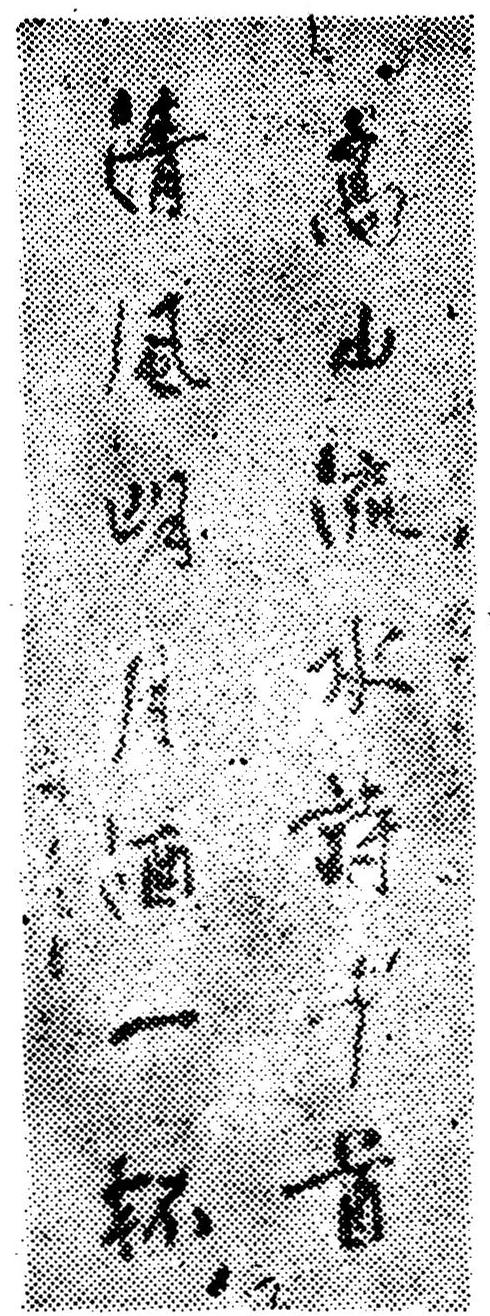 高山流水詩千首
清風明月酒一